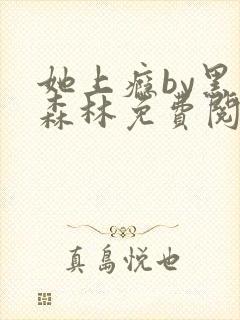 她上瘾by黑
森林免费阅
真島悦也